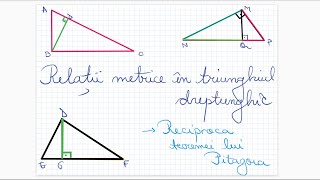 A
D
B
C
M
N
Q
P
Relații metrice în triunghiul
dreptunghic
D
E
G
F
→ Reciproca
teoremei lui
Pitagora